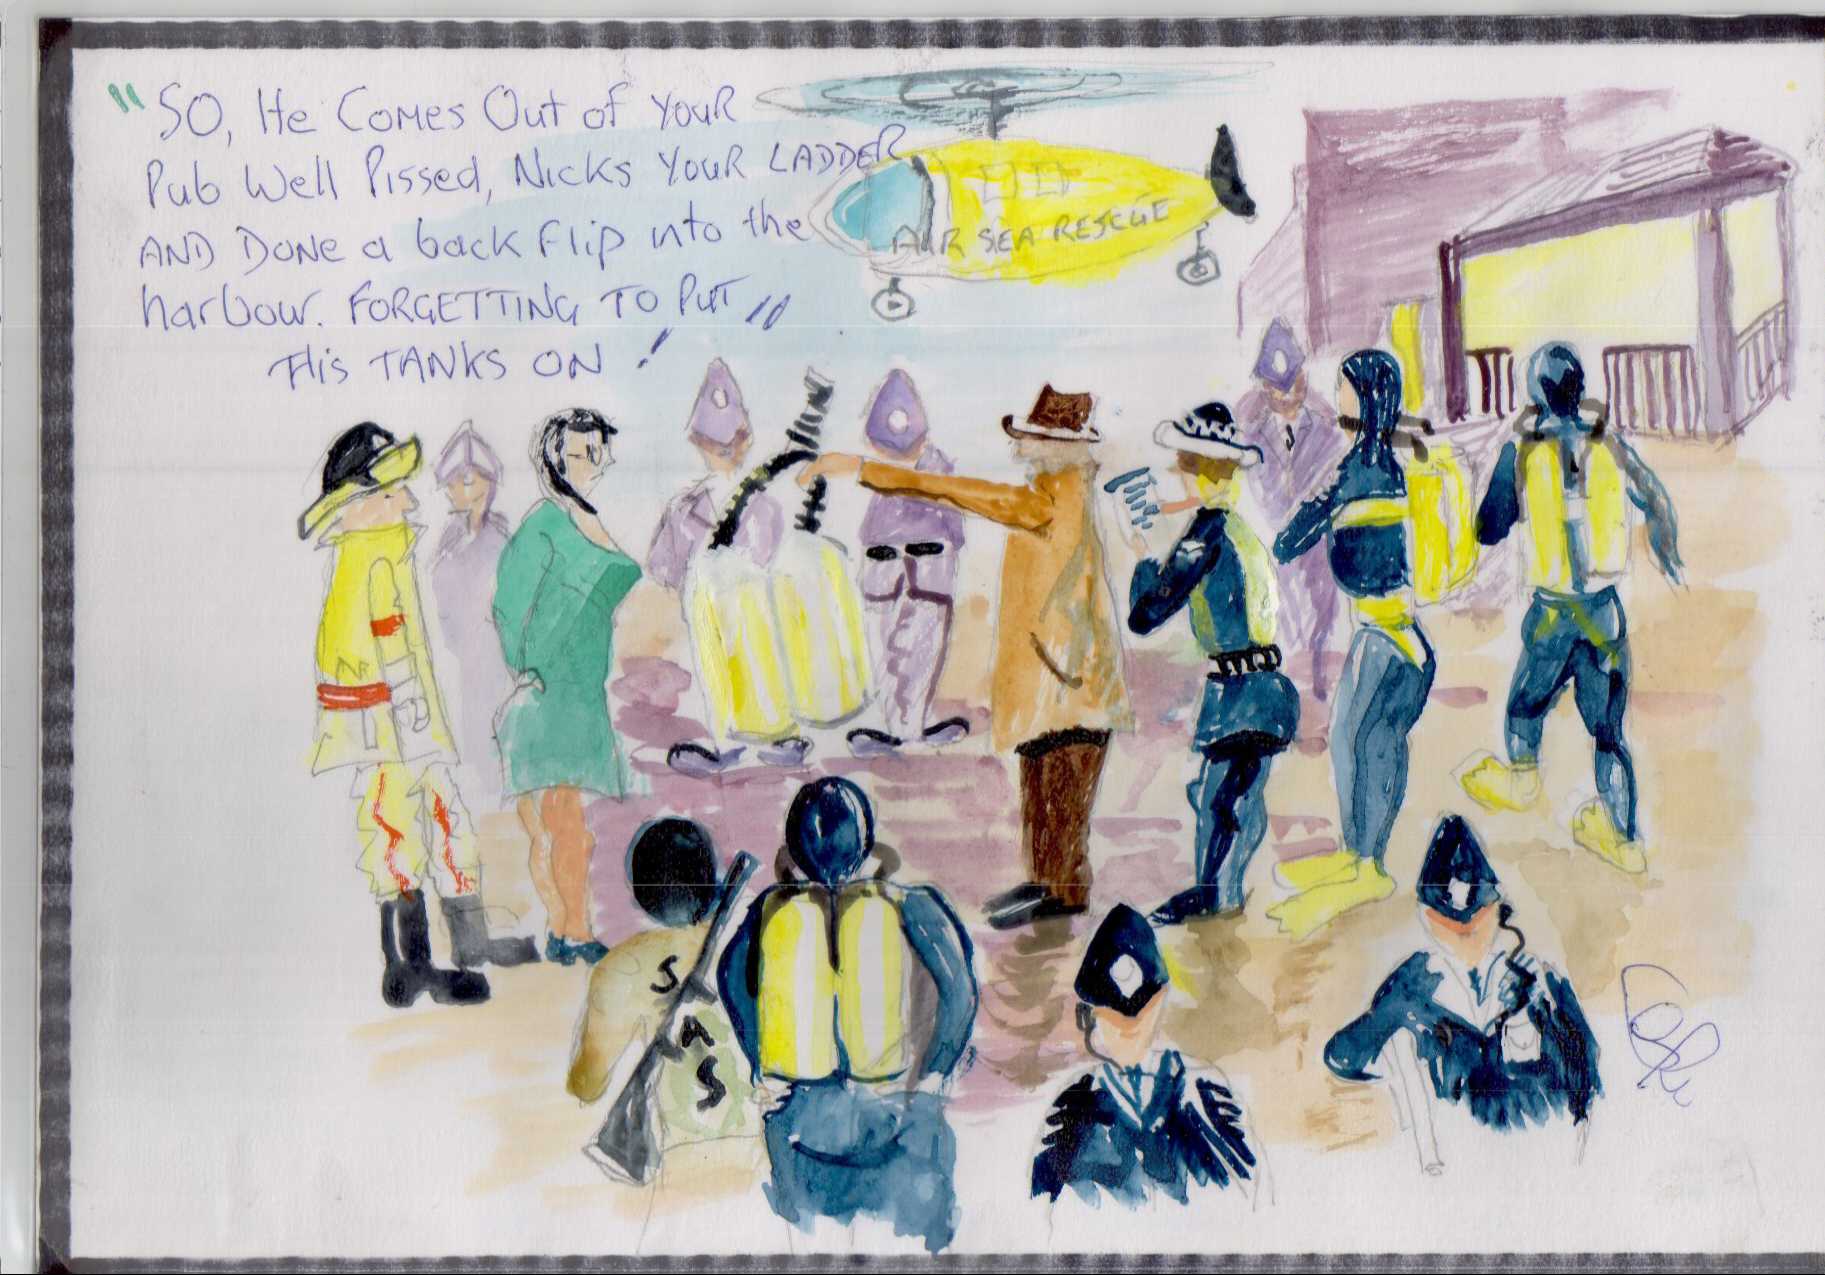 "SO, He Comes Out of YOUR
Pub Well Pissed, Nicks YOUR LADDER
AND DONe a back flip into the
harbour. FORGETTING TO PUT"
His TANKS ON!
AIR SEA RESCUE
S
A
S